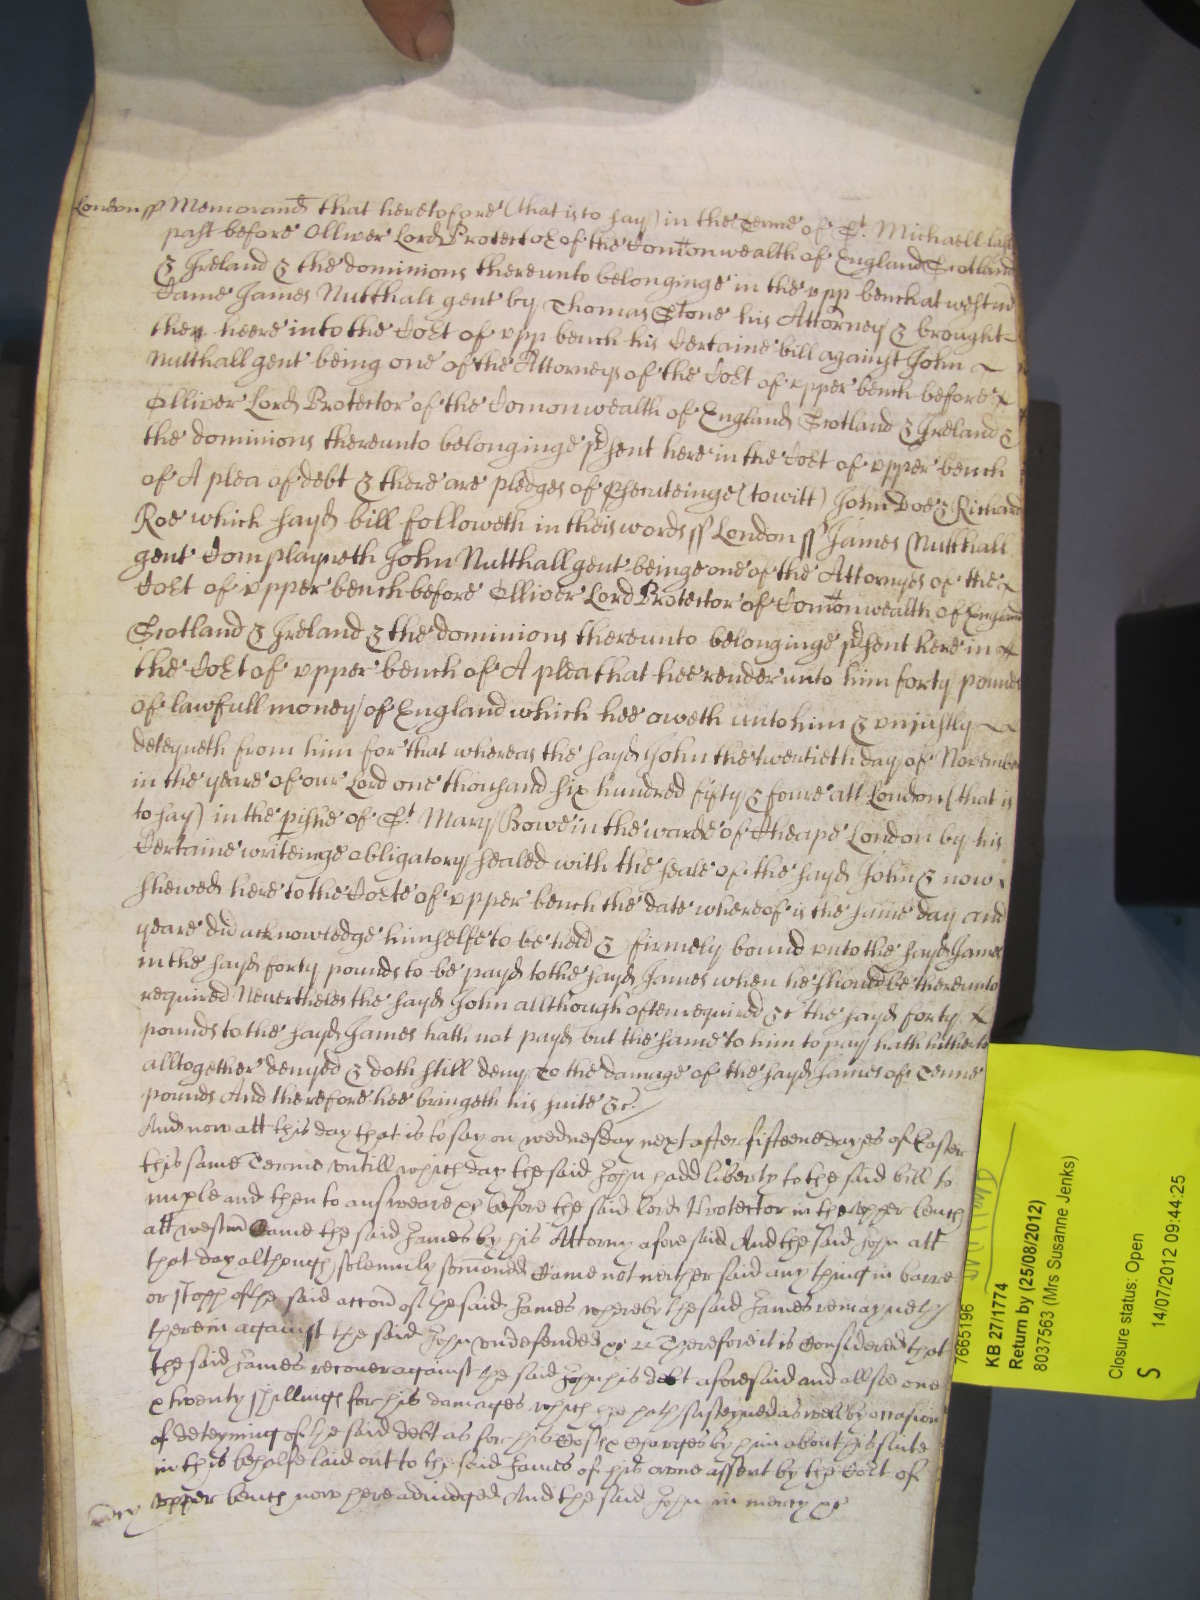 London ss Memorand that heretofore (that is to say) in the Terme of St. Michaell last
past before Olliver Lord Protector of the Comonwealth of England Scotland
& Ireland & the dominions thereunto belonginge in the upp bench at westmd
Came James Nutthall gent by Thomas Stone his Attorney & brought
then heere into the Cort of upp bench his Certaine bill against John
Nutthall gent being one of the Attorneys of the Cort of upper bench before
Olliver Lord Protector of the Comonwealth of England Scotland & Ireland &
the dominions thereunto belonginge psent here in the Cort of upper bench
of A plea of debt & there are pledges of Pseuteinge (to witt) John Doe & Richard
Roe which sayd bill followeth in theis words ss London ss James Nutthall
gent Complayneth John Nutthall gent beinge one of the Attornyes of the
Cort of upper bench before Olliver Lord Protector of Comonwealth of England
Scotland & Ireland & the dominions thereunto belonginge psent here in
the Cort of upper bench of A plea that hee render unto him forty pounds
of lawfull money of England which hee oweth unto him & unjustly
deteyneth from him for that whereas the sayd John the twentieth day of November
in the yeare of our Lord one thousand six hundred fifty & foure att London (that is
to say) in the pishe of St. Mary Bowe in the warde of Cheape London by his
Certaine writeinge obligatory sealed with the seale of the sayd John & now
shewed here to the Corte of upper bench the date whereof is the same day and
yeare did acknowledge himselfe to be held & firmely bound unto the sayd James
in the sayd forty pounds to be payd to the sayd James when he should be thereunto
required Nevertheles the sayd John allthough often required &c the sayd forty
pounds to the sayd James hath not payd but the same to him to pay hath hitherto
alltogether denyed & doth still deny To the damage of the sayd James of Tenne
pounds And therefore hee bringeth his suite &c.
And now att this day that is to say on wednesday next after fifteene dayes of Easter
this same Terme untill which day the said John hadd liberty to the said bill to
imple and then to answeare &c before the said Lord Protector in the upper bench
att westmd Came the said James by his Attorny aforesaid And the said John att
that day although solemnly somoned Came not neither said any thing in barre
or stopp of the said accon of the said James whereby the said James remayneth
therein against the said John undefended &c Therefore it is Considered that
the said James recover against the said John his debt aforesaid and allsoe one
& twenty shillings for his damages which he hath susteyned as well by occasion
of deteyning of the said debt as for his Costs & Charges by him about his suite
in this behalfe laid out to the said James of his owne assent by the Cort of
upper bench now here adiudged And the said John in mercy &c
mcy
7665196
KB 27/1774
Return by (25/08/2012)
8037563 (Mrs Susanne Jenks)
Closure status: Open
S 14/07/2012 09:44:25